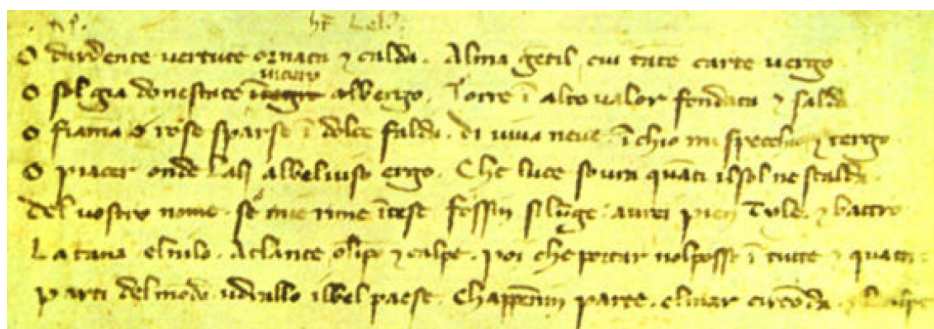 O dardente uertute ornata ⁊ calda. Alma gētil cui tāte carte uergo
O sol gia donestate ītegro albergo. Torre ī alto ualor fondata ⁊ salda
O fiāma o rose sparse ī dolce falda. di uiua neue. ī chio mi specchio ⁊ tergo
O piacer onde lali albel uiso ergo. Che luce soura quāti ilsol ne scalda.
del uostro nome. se mie rime ītese fossin si lūge. aurei pien Tyle. ⁊ battro
La tana elnilo. Atlante olīpo ⁊ calpe. poi che portar nolposso ī tutte ⁊ quattro
parti del mōdo. udrallo ilbel paese. Chappenin parte. elmar circōda. ⁊ lalpe